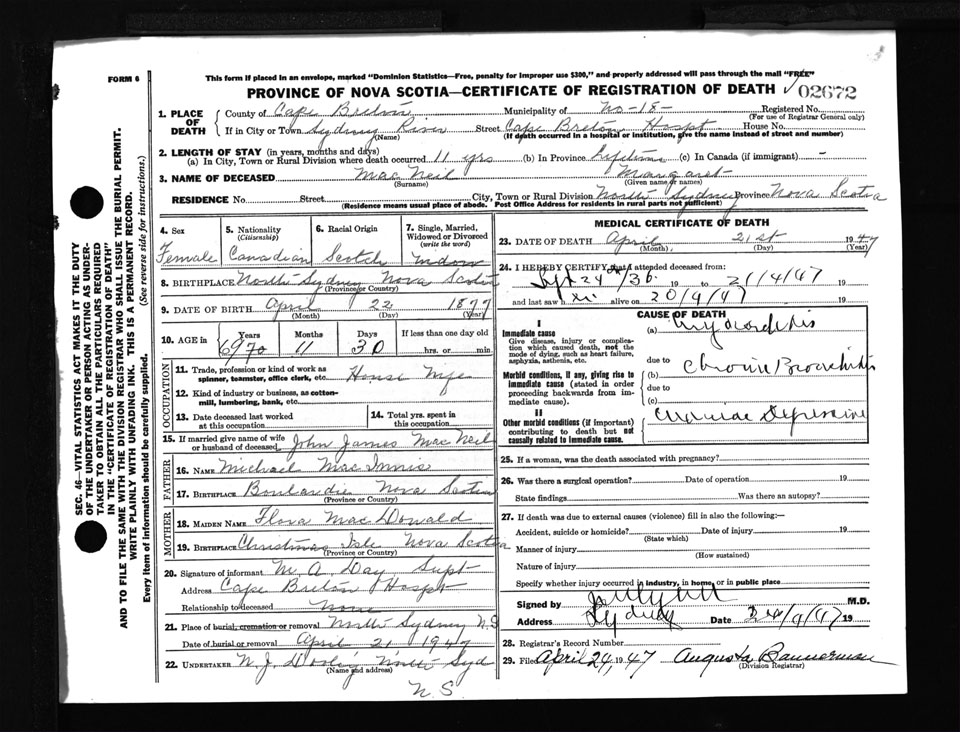 FORM 6
This form if placed in an envelope, marked "Dominion Statistics—Free, penalty for improper use $300," and properly addressed will pass through the mail "FREE"
PROVINCE OF NOVA SCOTIA—CERTIFICATE OF REGISTRATION OF DEATH 02672
1. PLACE OF DEATH
County of Cape Breton Municipality of No-18- Registered No.
(For use of Registrar General only)
If in City or Town Sydney River Street Cape Breton Hospt. House No.
(Name) (If death occurred in a hospital or institution, give the name instead of street and number)
2. LENGTH OF STAY (in years, months and days)
(a) In City, Town or Rural Division where death occurred 11 yrs (b) In Province Lifetime (c) In Canada (if immigrant) -
3. NAME OF DECEASED Mac Neil Margaret
(Surname) (Given name or names)
RESIDENCE No. Street City, Town or Rural Division North Sydney Province Nova Scotia
(Residence means usual place of abode. Post Office Address for residents in rural parts not sufficient)
4. Sex Female
5. Nationality (Citizenship) Canadian
6. Racial Origin Scotch
7. Single, Married, Widowed or Divorced (write the word) Widow
8. BIRTHPLACE North Sydney Nova Scotia
(Province or Country)
9. DATE OF BIRTH April 22 1877
(Month) (Day) (Year)
10. AGE in Years Months Days If less than one day old
69 70 11 30 hrs. or min.
OCCUPATION
11. Trade, profession or kind of work as spinner, teamster, office clerk, etc. House Wife
12. Kind of industry or business, as cotton-mill, lumbering, bank, etc.
13. Date deceased last worked at this occupation
14. Total yrs. spent in this occupation
15. If married give name of wife or husband of deceased John James Mac Neil
FATHER
16. NAME Michael Mac Innis
17. BIRTHPLACE Boulardie Nova Scotia
(Province or Country)
MOTHER
18. MAIDEN NAME Flora Mac Donald
19. BIRTHPLACE Christmas Isle Nova Scotia
(Province or Country)
20. Signature of informant M. A. Day, Supt
Address Cape Breton Hospt
Relationship to deceased None
21. Place of burial, cremation or removal North Sydney N.S
Date of burial or removal April 21 1947
22. UNDERTAKER North Syd
(Name and address)
N.S
MEDICAL CERTIFICATE OF DEATH
23. DATE OF DEATH April 21st 1947
(Month) (Day) (Year)
24. I HEREBY CERTIFY that I attended deceased from:
Sept 24th/36 19 to 21/4/47 19
and last saw alive on 20/4/47 19
CAUSE OF DEATH
I
Immediate cause
Give disease, injury or complication which caused death, not the mode of dying, such as heart failure, asphyxia, asthenia, etc.
(a) Myocarditis
due to
Morbid conditions, if any, giving rise to immediate cause (stated in order proceeding backwards from immediate cause).
(b) Chronic Bronchitis
due to
(c)
II
Other morbid conditions (if important) contributing to death but not causally related to immediate cause.
25. If a woman, was the death associated with pregnancy?
26. Was there a surgical operation? Date of operation 19
State findings Was there an autopsy?
27. If death was due to external causes (violence) fill in also the following:—
Accident, suicide or homicide? Date of injury 19
(State which)
Manner of injury
(How sustained)
Nature of injury
Specify whether injury occurred in industry, in home, or in public place
Signed by M.D.
Address Sydney Date 19
28. Registrar's Record Number
29. Filed April 24, 1947 Augusta Bannerman
(Division Registrar)
SEC. 46—VITAL STATISTICS ACT MAKES IT THE DUTY
OF THE UNDERTAKER OR PERSON ACTING AS UNDER-
TAKER TO OBTAIN ALL THE PARTICULARS REQUIRED
IN THE "CERTIFICATE OF REGISTRATION OF DEATH"
AND TO FILE THE SAME WITH THE DIVISION REGISTRAR WHO SHALL ISSUE THE BURIAL PERMIT.
WRITE PLAINLY WITH UNFADING INK. THIS IS A PERMANENT RECORD.
Every item of information should be carefully supplied. (See reverse side for instructions.)